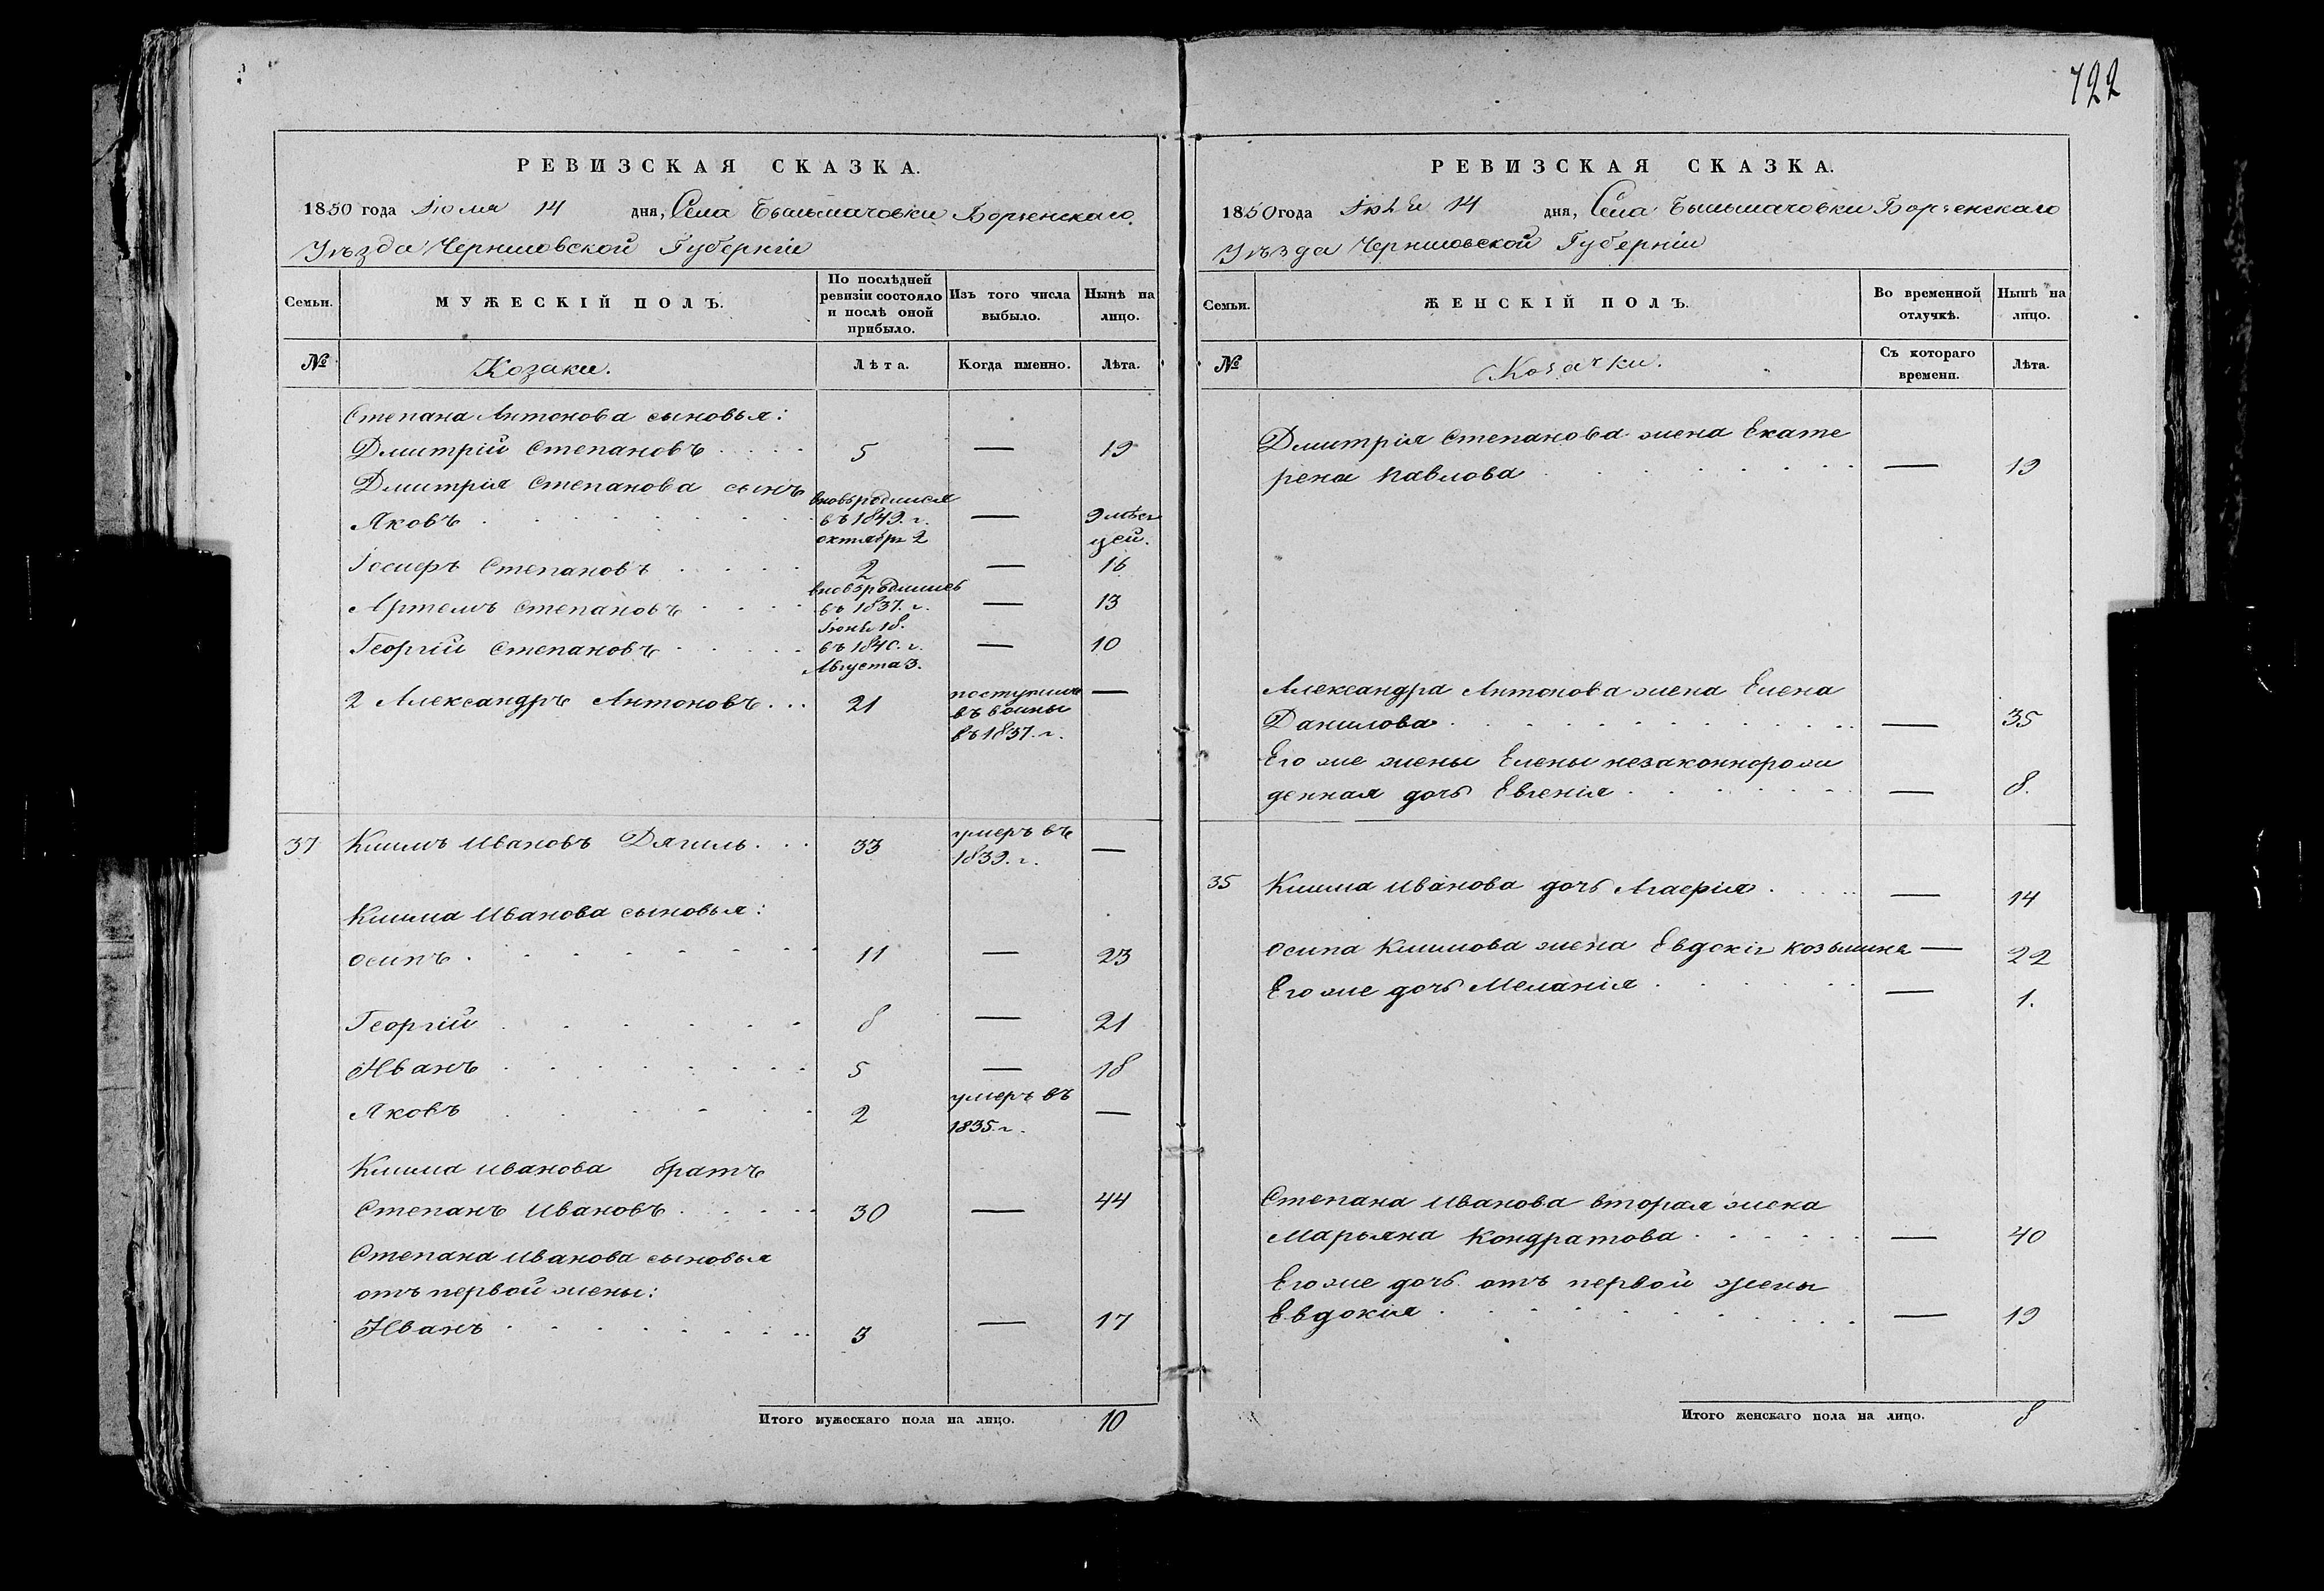 722
РЕВИЗСКАЯ СКАЗКА.
1850 года Июля 14 дня, Села Бельмачовки Борзенского
Уѣзда Черниговской Губерніи
Семьи. МУЖЕСКІЙ ПОЛЪ. По послѣдней ревизіи состояло и послѣ оной прибыло. Изъ того числа выбыло. Нынѣ на лицо.
№ Козаки. Лѣта. Когда именно. Лѣта.
Степана Антонова сыновья:
Дмитрій Степановъ 5 — 19
Дмитрія Степанова сынъ вновьродился
Яковъ въ 1849. г. — 9 мѣся
октября 2 цей.
Іосифъ Степановъ 2 — 16
вновьродились
Артемъ Степановъ въ 1837. г. — 13
Іюня 18.
Георгій Степановъ въ 1840. г. — 10
Августа 3.
2 Александръ Антоновъ 21 поступилъ —
въ воины
въ 1837. г.
37 Климъ Ивановъ Дягиль 33 умеръ въ —
1839. г.
Клима Иванова сыновья:
Осипъ 11 — 23
Георгій 8 — 21
Иванъ 5 — 18
Яковъ 2 умеръ въ —
1835. г.
Клима Иванова братъ
Степанъ Ивановъ 30 — 44
Степана Иванова сыновья
отъ первой жены:
Иванъ 3 — 17
Итого мужескаго пола на лицо. 10
РЕВИЗСКАЯ СКАЗКА.
1850 года Іюля 14 дня, Села Бельмачовки Борзенскаго
Уѣзда Черниговской Губерніи
Семьи. ЖЕНСКІЙ ПОЛЪ. Во временной отлучкѣ. Нынѣ на лицо.
№ Козачки. Съ котораго времени. Лѣта.
Дмитрія Степанова жена Екате
рена Павлова — 19
Александра Антонова жена Елена
Данилова — 35
Его же жены Елены незаконнорож
денная дочь Евгенія — 8.
35 Клима Иванова дочь Агафія — 14
Осипа Климова жена Евдокія Козьмина — 22
Его же дочь Меланія — 1.
Степана Иванова вторая жена
Марьяна Кондратова — 40
Его же дочь отъ первой жены
Евдокія — 19
Итого женскаго пола на лицо. 8